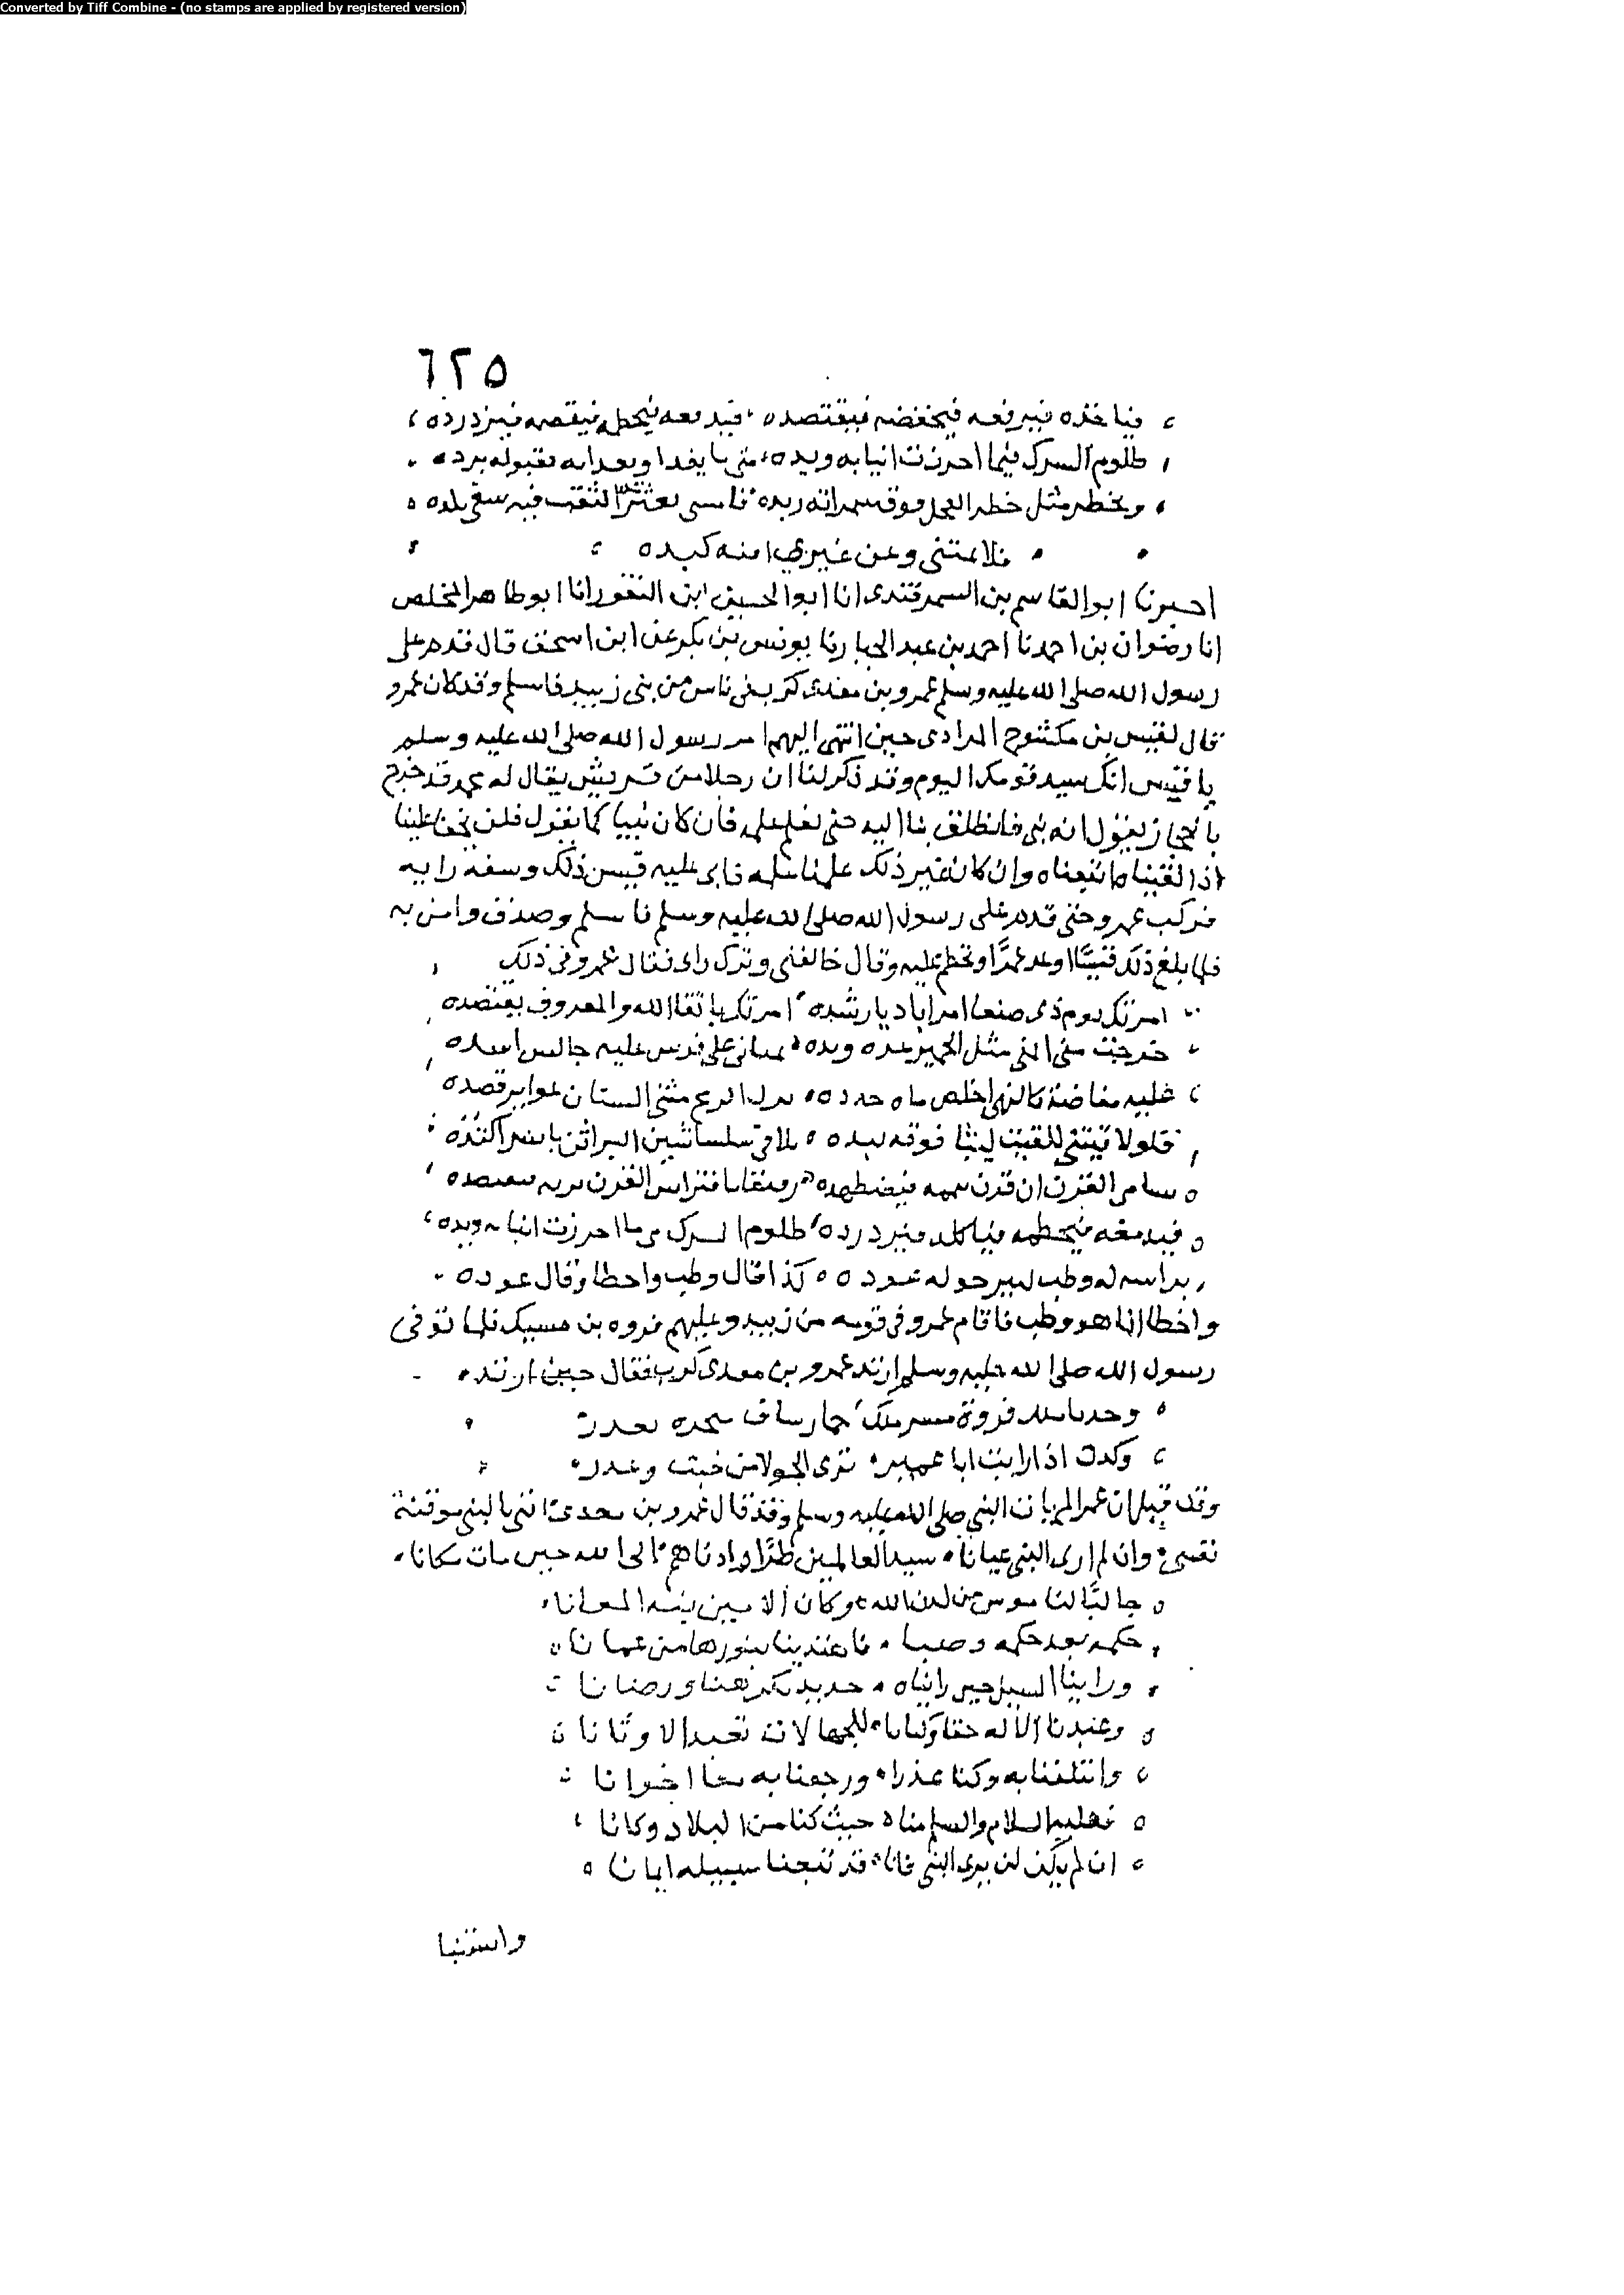 Converted by Tiff Combine - (no stamps are applied by registered version)
٦٢٥
فياخذه فيرفعه فيخفضه فيقتصده فيدمغه فيحطمه فيقصمه فيزدرده
ظلوم الشرك فيما احرزت انيابه ويده متى ما يغدا او يعدا به فقبوله برده
ويخطر مثل خطر الفحل فوق سراته زبده فامسى
فلا تمتني وعن غيري امنه كبده
اخبرنا ابو القاسم بن السمرقندى انا ابو الحسين ابن النقور انا ابو طاهر المخلص
انا رضوان بن احمد نا احمد بن عبد الجبار نا يونس بن بكير عن ابن اسحق قال قدم على
رسول الله صلى الله عليه وسلم عمرو بن معدى كرب فى ناس من بنى زبيد فاسلم وقد كان عمرو
قال لقيس بن مكشوح المرادى حين انتهى اليهم امر رسول الله صلى الله عليه وسلم
يا قيس انك سيد قومك اليوم وقد ذكر لنا ان رجلا من قريش يقال له محمد قد خرج
بالحجاز يقول انه نبى فانطلق بنا اليه حتى نعلم علمه فان كان نبيا كما يقول فلن يخفى علينا
اذا لقيناه اتبعناه وان كان غير ذلك علمنا علمه فابى عليه قيس ذلك وسفه رايه
فركب عمرو حتى قدم على رسول الله صلى الله عليه وسلم فاسلم وصدق وامن به
فلما بلغ ذلك قيسًا اوعد عمرًا وتحطم عليه وقال خالفنى وترك راى فقال عمرو فى ذلك
امرتك يوم ذى صنعا امرا باديا رشده امرتك باتقا الله والمعروف يقتصده
خرجت منى المنى مثل الحمير غره وتده تمنانى على فرس عليه جالس اسده
عليه مفاضة كالنهى اخلص ماه جدده ترد الرمح مثنى السنان عواير قصده
فلولا قيتنى للقيت ليثا فوقه لبده تلاقى شنبثا شثن البراثن ناشرا كتده
يسامى القرن ان قرن تيممه فيعتضده
فيدمغه فيحطمه فياكله فيزدرده ظلوم الشرك فيما احرزت انيابه ويده
كذا قال وطب واخطا وقال عوده
واخطا انما هو وطب فاقام عمرو فى قومه من زبيد وعليهم فروه بن مسيك فلما توفى
رسول الله صلى الله عليه وسلم ارتد عمرو بن معدى كرب فقال حين ارتد
وجدنا ملك فروة شر ملك حمار ساف منخره بقذر
وكنت اذا رايت ابا عمير ترى الحولا من خبث وغدر
وقد قيل ان عمرا لم يات النبى صلى الله عليه وسلم وقد قال عمرو بن معدى اننى بالنبى موقنة
نفسى وان لم ارى النبى عيانا سيد العالمين طرًا وادناهم الى الله حين بات مكانا
جا بالناموس من لدن الله وكان الامين فيه المعانا
حكمه بعد حكمه وضيا فاهتدينا بنورها من عمانا
وراينا السبيل حين رايناه جديدا بكرهنا ورضانا
وعبدنا الاله حقا وكنا للجهالات نعبد الاوثانا
وائتلفنا به وكنا عدوا ورجعنا به معا اخوانا
فعليه السلام والسلم منا حيث كنا من البلاد وكانا
ان لم يكن لن يرى النبى فانا قد تبعنا سبيله ايمانا
واستنبا